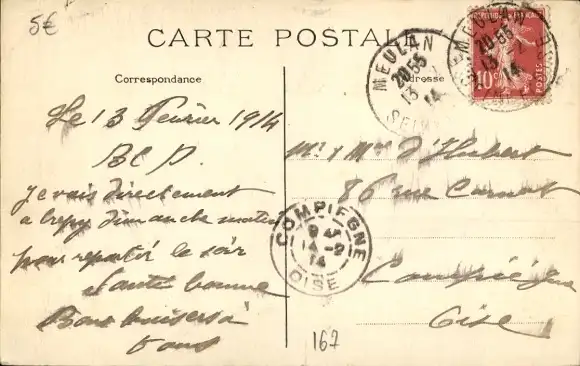 5€
CARTE POSTALE
Correspondance
Adresse
MEULAN
20 55
13
14
SEINE
REPUBLIQUE FRANÇAISE
10
POSTES
MEULAN
20 55
13
14
Le 13 Février 1914
Mr & Mme d'Hubert
86 rue Carnot
Compiègne
Oise
Je vais directement
a Crepy dimanche matin
pour repartir le soir
Santé bonne
Bons baisers à
tous
COMPIEGNE
9
14 -2
14
OISE
167